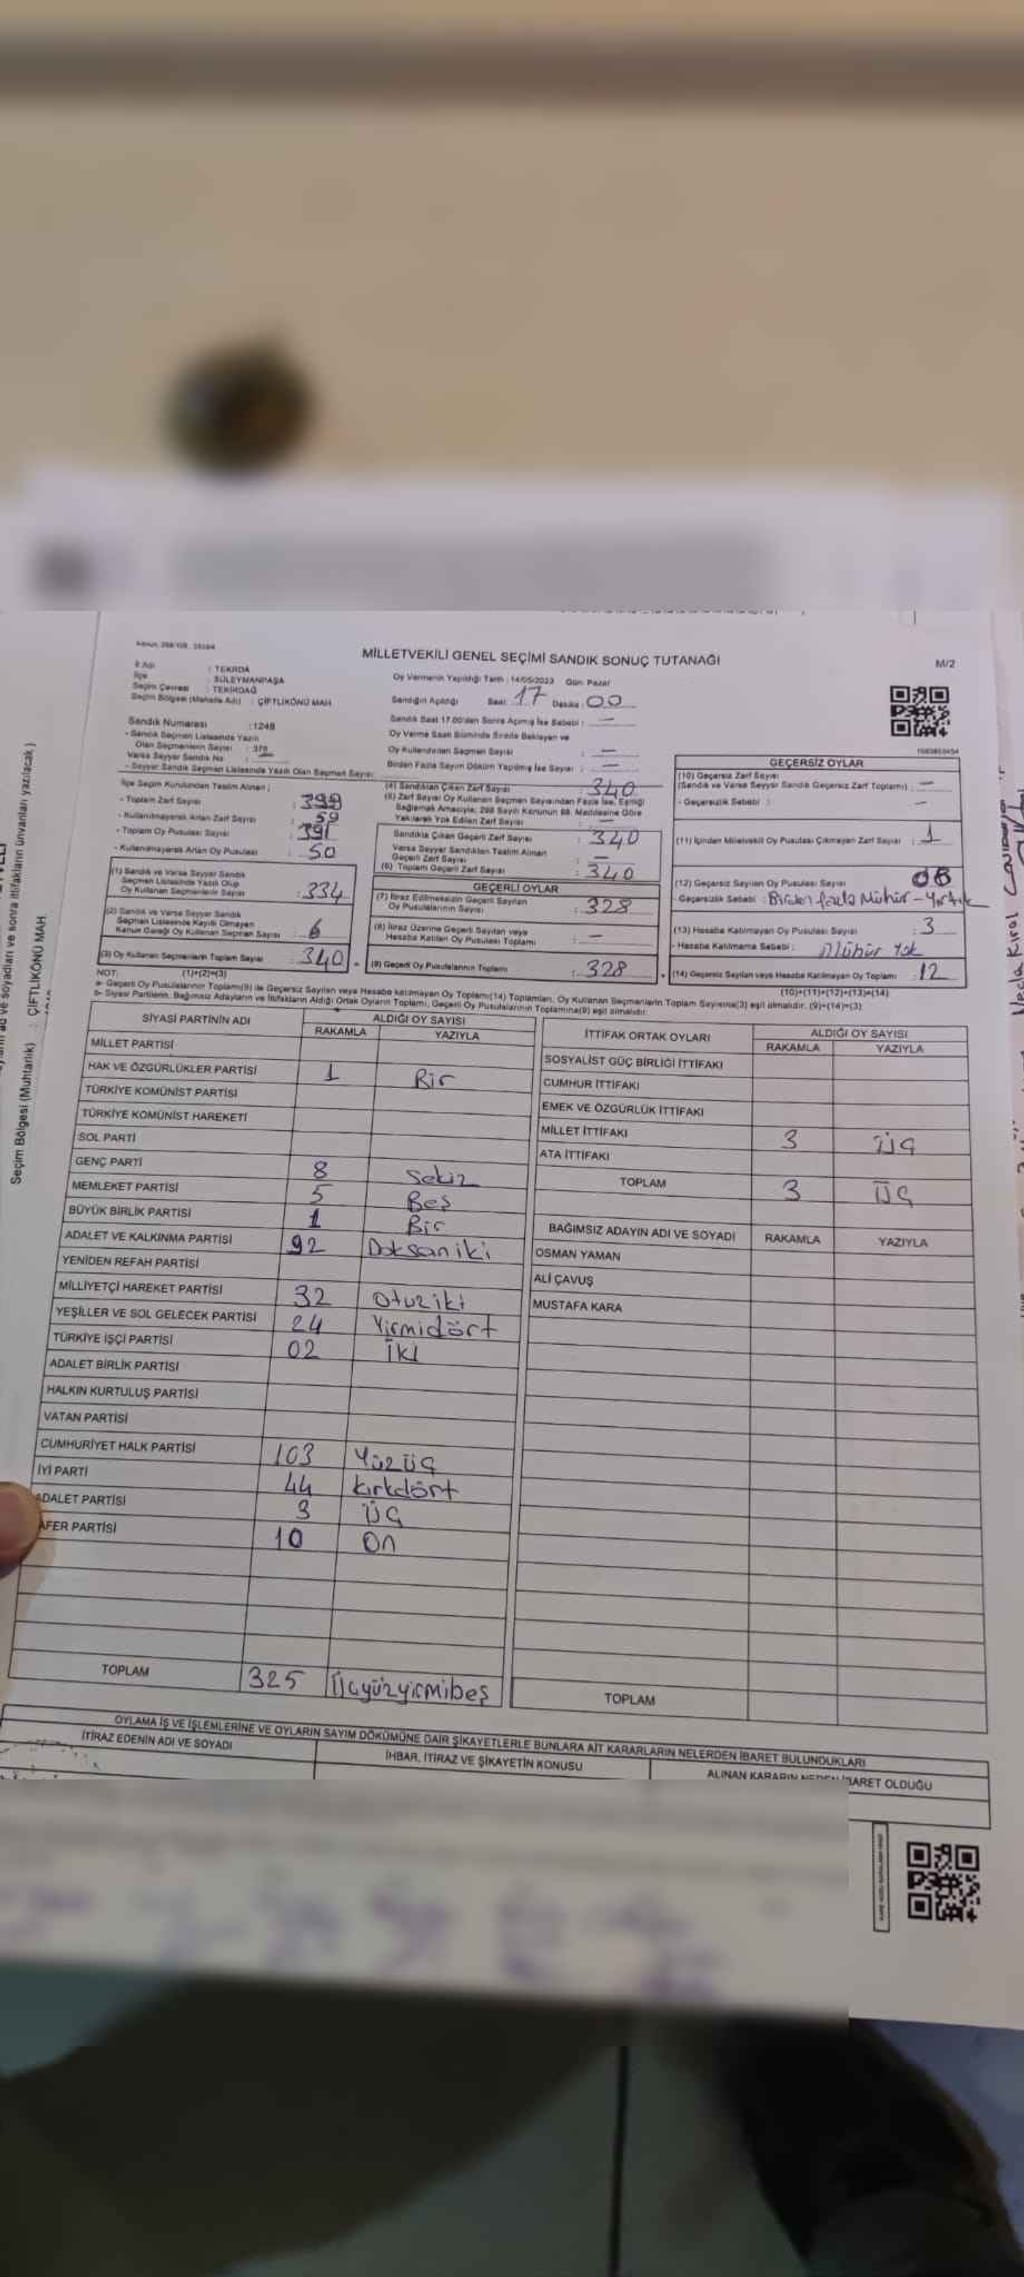 MİLLETVEKİLİ GENEL SEÇİMİ SANDIK SONUÇ TUTANAĞI
M/2
İl Adı : TEKİRDA
İlçe : SÜLEYMANPAŞA
Seçim Çevresi : TEKİRDAĞ
Seçim Bölgesi (Mahalle Adı) : ÇİFTLİKÖNÜ MAH
Oy Vermenin Yapıldığı Tarih : 14/05/2023 Gün: Pazar
Sandığın Açıldığı Saat: 17 Dakika: 00
Sandık Saat 17.00'den Sonra Açılmış İse Sebebi : —
Oy Verme Saati Bitiminde Sırada Bekleyen ve
Oy Kullandırılan Seçmen Sayısı : —
Birden Fazla Sayım Döküm Yapılmış İse Sayısı : —
Sandık Numarası : 1248
- Sandık Seçmen Listesinde Yazılı
Olan Seçmenlerin Sayısı : 378
Varsa Seyyar Sandık No
- Seyyar Sandık Seçmen Listesinde Yazılı Olan Seçmen Sayısı:
İlçe Seçim Kurulundan Teslim Alınan ;
- Toplam Zarf Sayısı : 399
- Kullanılmayarak Artan Zarf Sayısı : 59
- Toplam Oy Pusulası Sayısı : 391
- Kullanılmayarak Artan Oy Pusulası : 50
(1) Sandık ve Varsa Seyyar Sandık
Seçmen Listesinde Yazılı Olup
Oy Kullanan Seçmenlerin Sayısı : 334
(2) Sandık ve Varsa Seyyar Sandık
Seçmen Listesinde Kayıtlı Olmayan
Kanun Gereği Oy Kullanan Seçmen Sayısı : 6
(3) Oy Kullanan Seçmenlerin Toplam Sayısı : 340
(1)+(2)=(3)
(4) Sandıktan Çıkan Zarf Sayısı : 340
(5) Zarf Sayısı Oy Kullanan Seçmen Sayısından Fazla İse, Eşitliği
Sağlamak Amacıyla; 298 Sayılı Kanunun 98. Maddesine Göre
Yakılarak Yok Edilen Zarf Sayısı : —
Sandıkta Çıkan Geçerli Zarf Sayısı : 340
Varsa Seyyar Sandıktan Teslim Alınan
Geçerli Zarf Sayısı : —
(6) Toplam Geçerli Zarf Sayısı : 340
GEÇERLİ OYLAR
(7) İtiraz Edilmeksizin Geçerli Sayılan
Oy Pusulalarının Sayısı : 328
(8) İtiraz Üzerine Geçerli Sayılan veya
Hesaba Katılan Oy Pusulası Toplamı : —
(9) Geçerli Oy Pusulalarının Toplamı : 328
GEÇERSİZ OYLAR
(10) Geçersiz Zarf Sayısı
(Sandık ve Varsa Seyyar Sandık Geçersiz Zarf Toplamı) : —
- Geçersizlik Sebebi : —
(11) İçinden Milletvekili Oy Pusulası Çıkmayan Zarf Sayısı : 1
(12) Geçersiz Sayılan Oy Pusulası Sayısı : 08
- Geçersizlik Sebebi : Birden fazla Mühür - Yırtık
(13) Hesaba Katılmayan Oy Pusulası Sayısı : 3
- Hesaba Katılmama Sebebi : Mühür Yok
(14) Geçersiz Sayılan veya Hesaba Katılmayan Oy Toplamı : 12
(10)+(11)+(12)+(13)=(14)
NOT:
a- Geçerli Oy Pusulalarının Toplamı(9) ile Geçersiz Sayılan veya Hesaba katılmayan Oy Toplamı(14) Toplamları, Oy Kullanan Seçmenlerin Toplam Sayısına(3) eşit olmalıdır. (9)+(14)=(3)
b- Siyasi Partilerin, Bağımsız Adayların ve İttifakların Aldığı Ortak Oyların Toplamı, Geçerli Oy Pusulalarının Toplamına(9) eşit olmalıdır.
SİYASİ PARTİNİN ADI ALDIĞI OY SAYISI
RAKAMLA YAZIYLA
MİLLET PARTİSİ
HAK VE ÖZGÜRLÜKLER PARTİSİ 1 Bir
TÜRKİYE KOMÜNİST PARTİSİ
TÜRKİYE KOMÜNİST HAREKETİ
SOL PARTİ
GENÇ PARTİ 8 Sekiz
MEMLEKET PARTİSİ 5 Beş
BÜYÜK BİRLİK PARTİSİ 1 Bir
ADALET VE KALKINMA PARTİSİ 92 Doksan iki
YENİDEN REFAH PARTİSİ
MİLLİYETÇİ HAREKET PARTİSİ 32 otuziki
YEŞİLLER VE SOL GELECEK PARTİSİ 24 Yirmidört
TÜRKİYE İŞÇİ PARTİSİ 02 İki
ADALET BİRLİK PARTİSİ
HALKIN KURTULUŞ PARTİSİ
VATAN PARTİSİ
CUMHURİYET HALK PARTİSİ 103 Yüzüç
İYİ PARTİ 44 kırkdört
ADALET PARTİSİ 3 Üç
AFER PARTİSİ 10 On
TOPLAM 325 Üçyüzyirmibeş
İTTİFAK ORTAK OYLARI ALDIĞI OY SAYISI
RAKAMLA YAZIYLA
SOSYALİST GÜÇ BİRLİĞİ İTTİFAKI
CUMHUR İTTİFAKI
EMEK VE ÖZGÜRLÜK İTTİFAKI
MİLLET İTTİFAKI 3 Üç
ATA İTTİFAKI
TOPLAM 3 Üç
BAĞIMSIZ ADAYIN ADI VE SOYADI RAKAMLA YAZIYLA
OSMAN YAMAN
ALİ ÇAVUŞ
MUSTAFA KARA
TOPLAM
OYLAMA İŞ VE İŞLEMLERİNE VE OYLARIN SAYIM DÖKÜMÜNE DAİR ŞİKAYETLERLE BUNLARA AİT KARARLARIN NELERDEN İBARET BULUNDUKLARI
İTİRAZ EDENİN ADI VE SOYADI
İHBAR, İTİRAZ VE ŞİKAYETİN KONUSU
ALINAN KARARIN NEDEN İBARET OLDUĞU
ad ve soyadları ve sonra ittifakların ünvanları yazılacak )
Seçim Bölgesi (Muhtarlık) : ÇİFTLİKÖNÜ MAH